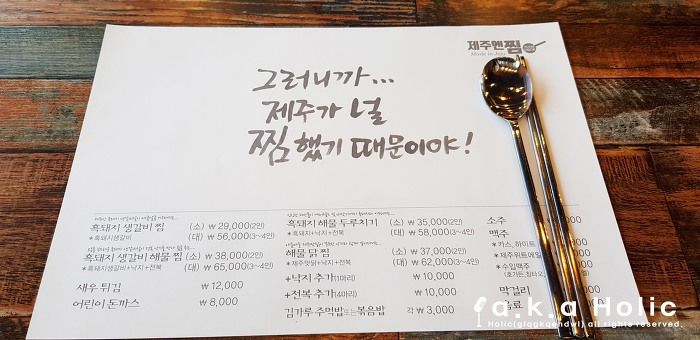 제주엔찜
Made in Jeju
그러니까...
제주가 널
찜했기 때문이야!
흑돼지 생갈비 찜 (소) ₩ 29,000(2인)
*흑돼지생갈비 (대) ₩ 56,000(3~4인)
흑돼지 생갈비 해물 찜 (소) ₩ 38,000(2인)
*흑돼지생갈비+낙지+전복 (대) ₩ 65,000(3~4인)
새우 튀김 ₩ 12,000
어린이 돈까스 ₩ 8,000
흑돼지 해물 두루치기 (소) ₩ 35,000(2인)
*흑돼지+낙지+전복 (대) ₩ 58,000(3~4인)
해물 닭 찜 (소) ₩ 37,000(2인)
*제주맛닭+낙지+전복 (대) ₩ 62,000(3~4인)
+낙지 추가(1마리) ₩ 10,000
+전복 추가(4마리) ₩ 10,000
김가루 주먹밥또는볶음밥 각 ₩ 3,000
소주
맥주
*카스, 하이트
*제주위트에일
*수입맥주
막걸리
음료
a.k.a Holic
Holic(glaqkqendwl) all rights reserved.